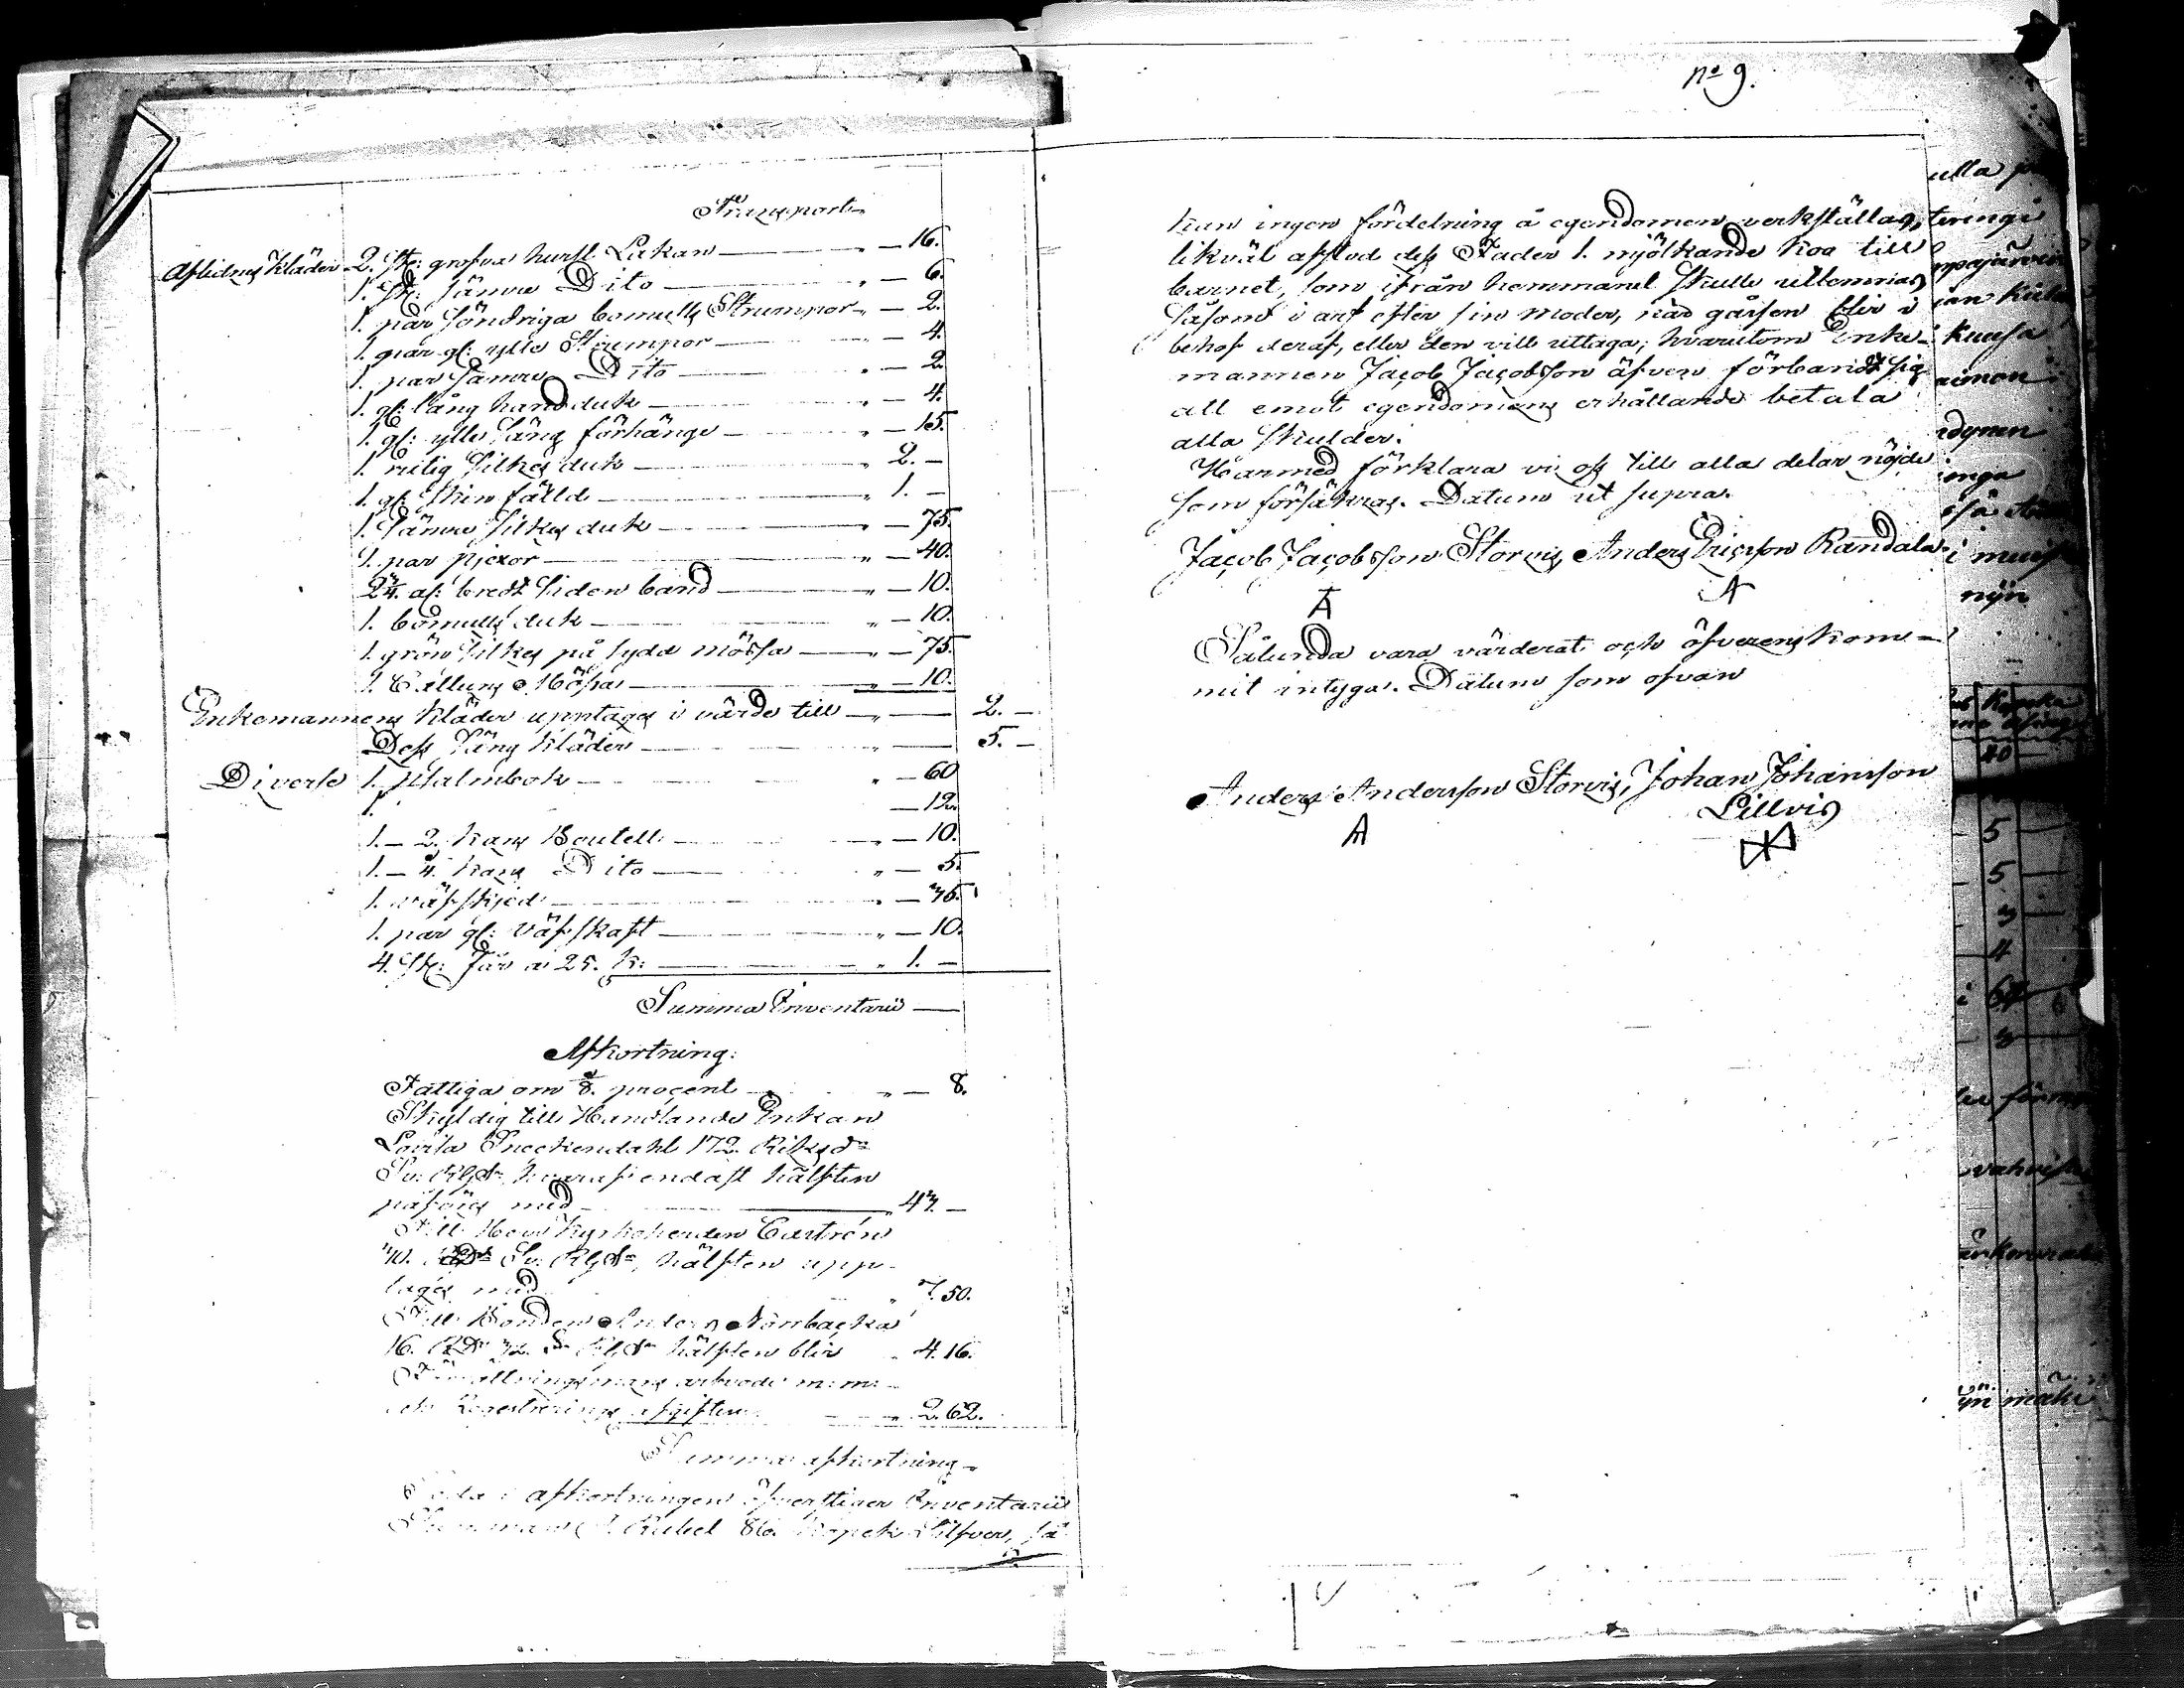 Transport
Aflidnes Kläder 2. st: grofva hursl Lakan — 16.
1. st: sämre Dito — 6.
1. par söndriga bomulls Strumpor — 2.
1. par gl: ylle Strumpor — 4.
1. par sämre Dito — 2
1. gl: lång handduk — 4.
1. gl: ylle Säng förhänge — 15.
1. rutig Silkes duk — 2. —
1. gl: skin fälld — 1. —
1. Sämre Silkes duk — 75.
1. par pjexor — 40.
2¼. al: bredt Siden band — 10.
1. bomulls duk — 10.
1. grön Silkes på sydd mössa — 75.
1. Cattuns Mössa — 10.
Enkemannens Kläder upptages i värde till — 2. —
Dess Säng Kläder — 5. —
Diverse 1. Psalmbok — 60
1. — 12.
1. — 2. kans Boutell: — 10.
1. — 4. kans Dito — 5.
1. väfsked — 75.
1. par gl: Väfskaft — 10.
4. st: Får a 25. k: — 1. —
Summa Inventarii —
Afkortning:
Fattiga om ⅛. procent — 8.
Skyldig till Handlande Enkan
Lovisa Sneckendahl 172. Riksdr
Sv: Rgds, hvaraf endast hälften
påföres med — 43. —
Till Herr Kyrkoherden Castrén
30. RDr Sv: Rgds, hälften upp-
tages med 7. 50.
Till Bonden Anders Norrbacka
16. RDr 32. Sr Rgds hälften blir 4. 16.
Förrättningsmans arfvode m: m:
och Registrerings afgiften 2. 62.
Summa afkortning
Som afkortningen öfverstiger Inventarii
Summan Rubel 86. Kopek Silfver, så
no 9.
kan ingen fördelning å egendomen verkställas,
likväl afstod dess Fader 1. mjölkande Koa till
barnet, som ifrån hemmanet skulle utlemnas
såsom i arf efter sin moder, när gåssen blir i
behof deraf, eller den vill uttaga; hvarutom Enke-
mannen Jacob Jacobsson äfven förband sig
att emot egendomens erhållande betala
alla skulder.
Härmed förklara vi oss till alla delar nöjde
som försäkras. Datum ut supra.
Jacob Jacobsson Storvis, Anders Ericsson Randala
A A
Sålunda vara värderat och öfverenskom-
mit intygar. Datum som ofvan
Anders Andersson Storvis, Johan Johansson
Lillvis
A
ulla
teringi
kuusa
i
nyn
40
5
5
3
4
64 6
3